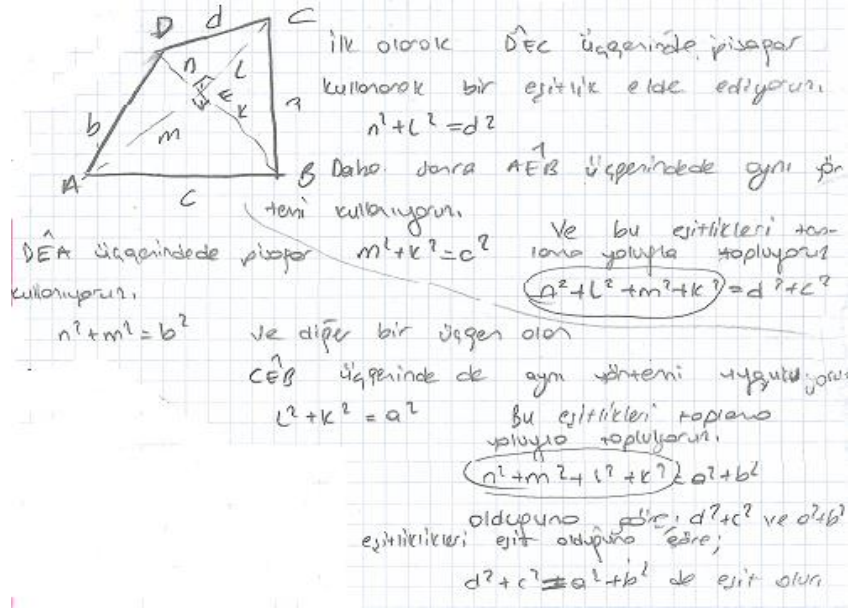 D d C
n L
E K
b m a
A C B
ilk olarak DEC üçgeninde pisagor
kullanarak bir eşitlik elde ediyoruz.
n²+L²=d²
Daha sonra AEB üçgenindede aynı yön
temi kullanıyoruz.
m²+k²=c²
DEA üçgenindede pisagor
kullanıyoruz.
n²+m²=b²
Ve bu eşitlikleri
yoluyla topluyoruz
n²+L²+m²+k²=d²+c²
ve diğer bir üçgen olan
CEB üçgeninde de aynı yöntemi uyguluyoruz
L²+k²=a²
Bu eşitlikleri toplama
yoluyla topluyoruz.
n²+m²+L²+k²=a²+b²
olduğuna göre; d²+c² ve a²+b²
eşitliklikleri eşit olduğuna göre;
d²+c²=a²+b² de eşit olur.